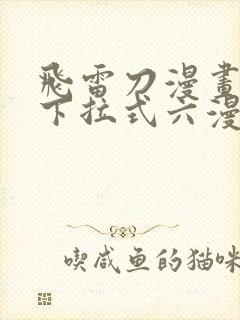 飛雷刀漫畫
下拉式六漫
喫咸鱼的猫咪